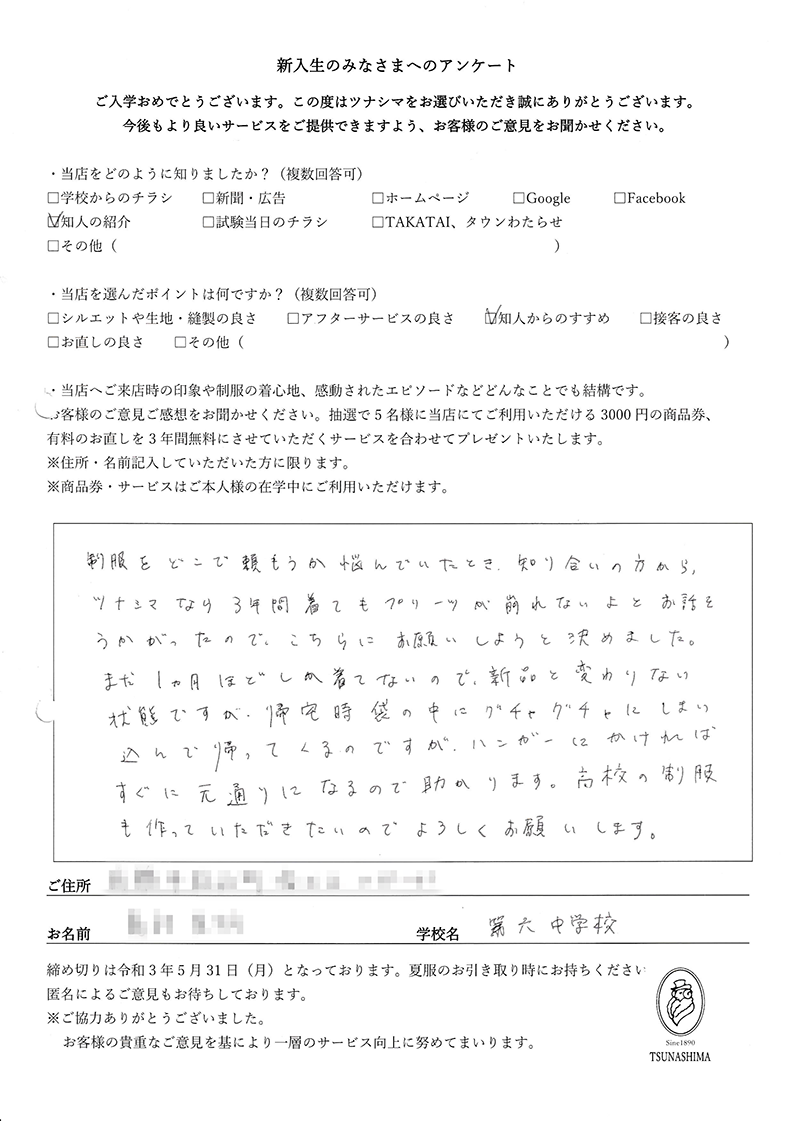 新入生のみなさまへのアンケート
ご入学おめでとうございます。この度はツナシマをお選びいただき誠にありがとうございます。
今後もより良いサービスをご提供できますよう、お客様のご意見をお聞かせください。
・当店をどのように知りましたか?（複数回答可）
□学校からのチラシ □新聞・広告 □ホームページ □Google □Facebook
☑知人の紹介 □試験当日のチラシ □TAKATAI、タウンわたらせ
□その他（ ）
・当店を選んだポイントは何ですか?（複数回答可）
□シルエットや生地・縫製の良さ □アフターサービスの良さ ☑知人からのすすめ □接客の良さ
□お直しの良さ □その他（ ）
・当店へご来店時の印象や制服の着心地、感動されたエピソードなどどんなことでも結構です。
お客様のご意見ご感想をお聞かせください。抽選で5名様に当店にてご利用いただける3000円の商品券、
有料のお直しを3年間無料にさせていただくサービスを合わせてプレゼントいたします。
※住所・名前記入していただいた方に限ります。
※商品券・サービスはご本人様の在学中にご利用いただけます。
制服をどこで頼もうか悩んでいたとき、知り合いの方から、
ツナシマなら3年間着てもプリーツが崩れないよとお話を
うかがったので、こちらにお願いしようと決めました。
まだ1ヵ月ほどしか着てないので、新品と変わりない
状態ですが、帰宅時袋の中にグチャグチャにしまい
込んで帰ってくるのですが、ハンガーにかければ
すぐに元通りになるので助かります。高校の制服
も作っていただきたいのでよろしくお願いします。
ご住所
お名前 学校名 第六中学校
締め切りは令和3年5月31日（月）となっております。夏服のお引き取り時にお持ちください
匿名によるご意見もお待ちしております。
※ご協力ありがとうございました。
お客様の貴重なご意見を基により一層のサービス向上に努めてまいります。
Since1890
TSUNASHIMA